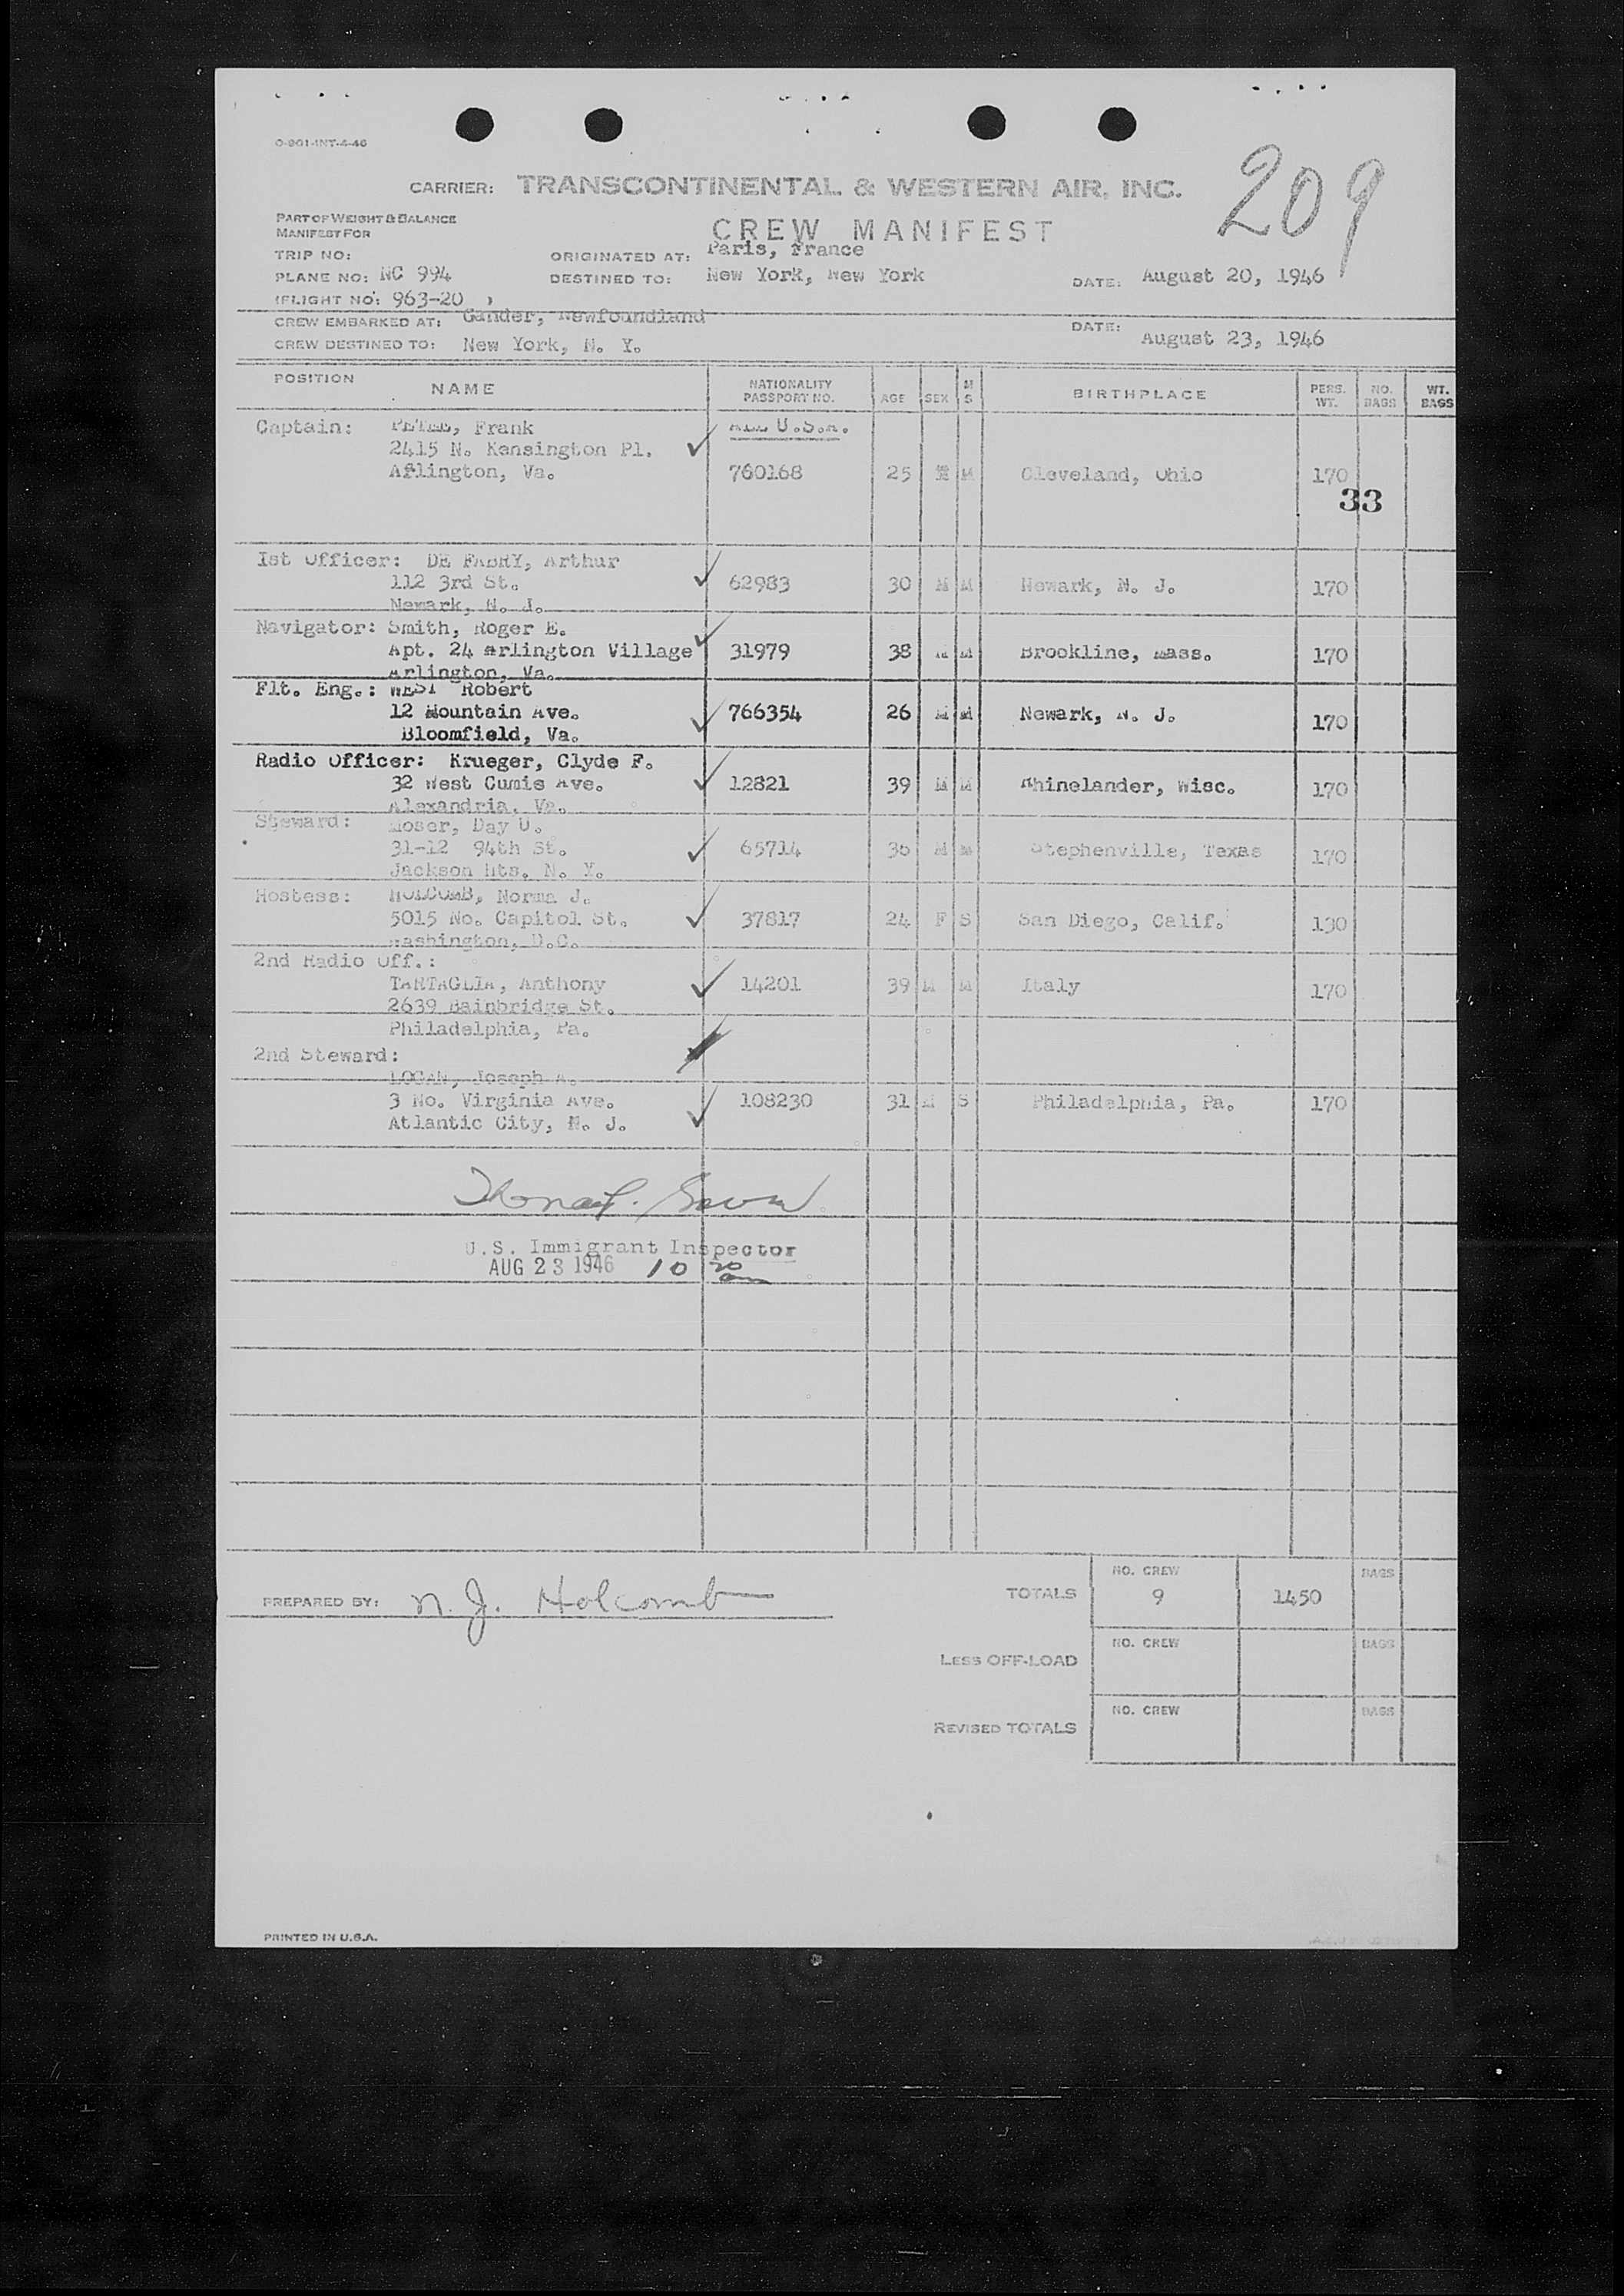 O-901-INT-4-46
209
CARRIER: TRANSCONTINENTAL & WESTERN AIR, INC.
PART OF WEIGHT & BALANCE
MANIFEST FOR
CREW MANIFEST
TRIP NO: ORIGINATED AT: Paris, France
PLANE NO: NC 994 DESTINED TO: New York, New York DATE: August 20, 1946
(FLIGHT NO: 963-20 )
CREW EMBARKED AT: Gander, Newfoundland DATE: August 23, 1946
CREW DESTINED TO: New York, N. Y.
POSITION NAME NATIONALITY PASSPORT NO. AGE SEX M S BIRTHPLACE PERS. WT. NO. BAGS WT. BAGS
Captain: Frank ALL U.S.A.
2415 N. Kensington Pl.
Arlington, Va. 760168 25 M M Cleveland, Ohio 170
33
1st Officer: DE FABRY, Arthur
112 3rd St. 62983 30 M M Newark, N. J. 170
Newark, N. J.
Navigator: Smith, Roger E.
Apt. 24 Arlington Village 31979 38 M M Brookline, Mass. 170
Arlington, Va.
Flt. Eng.: WEST Robert
12 Mountain Ave. 766354 26 M M Newark, N. J. 170
Bloomfield, Va.
Radio Officer: Krueger, Clyde F.
32 West Cumis Ave. 12821 39 M M Rhinelander, Wisc. 170
Alexandria, Va.
Steward: Moser, Day O.
31-12 94th St. 65714 M M Stephenville, Texas 170
Jackson Hts. N. Y.
Hostess: HOLCOMB, Norma J.
5015 No. Capitol St. 37817 24 F S San Diego, Calif. 130
Washington, D.C.
2nd Radio Off.:
TARTAGLIA, Anthony 14201 39 M M Italy 170
2639 Bainbridge St.
Philadelphia, Pa.
2nd Steward:
LOGAN, Joseph A.
3 No. Virginia Ave. 108230 31 M S Philadelphia, Pa. 170
Atlantic City, N. J.
U.S. Immigrant Inspector
AUG 23 1946 10 20 am
PREPARED BY: N. J. Holcomb
TOTALS NO. CREW 9 1450 BAGS
LESS OFF-LOAD NO. CREW BAGS
REVISED TOTALS NO. CREW BAGS
PRINTED IN U.S.A.